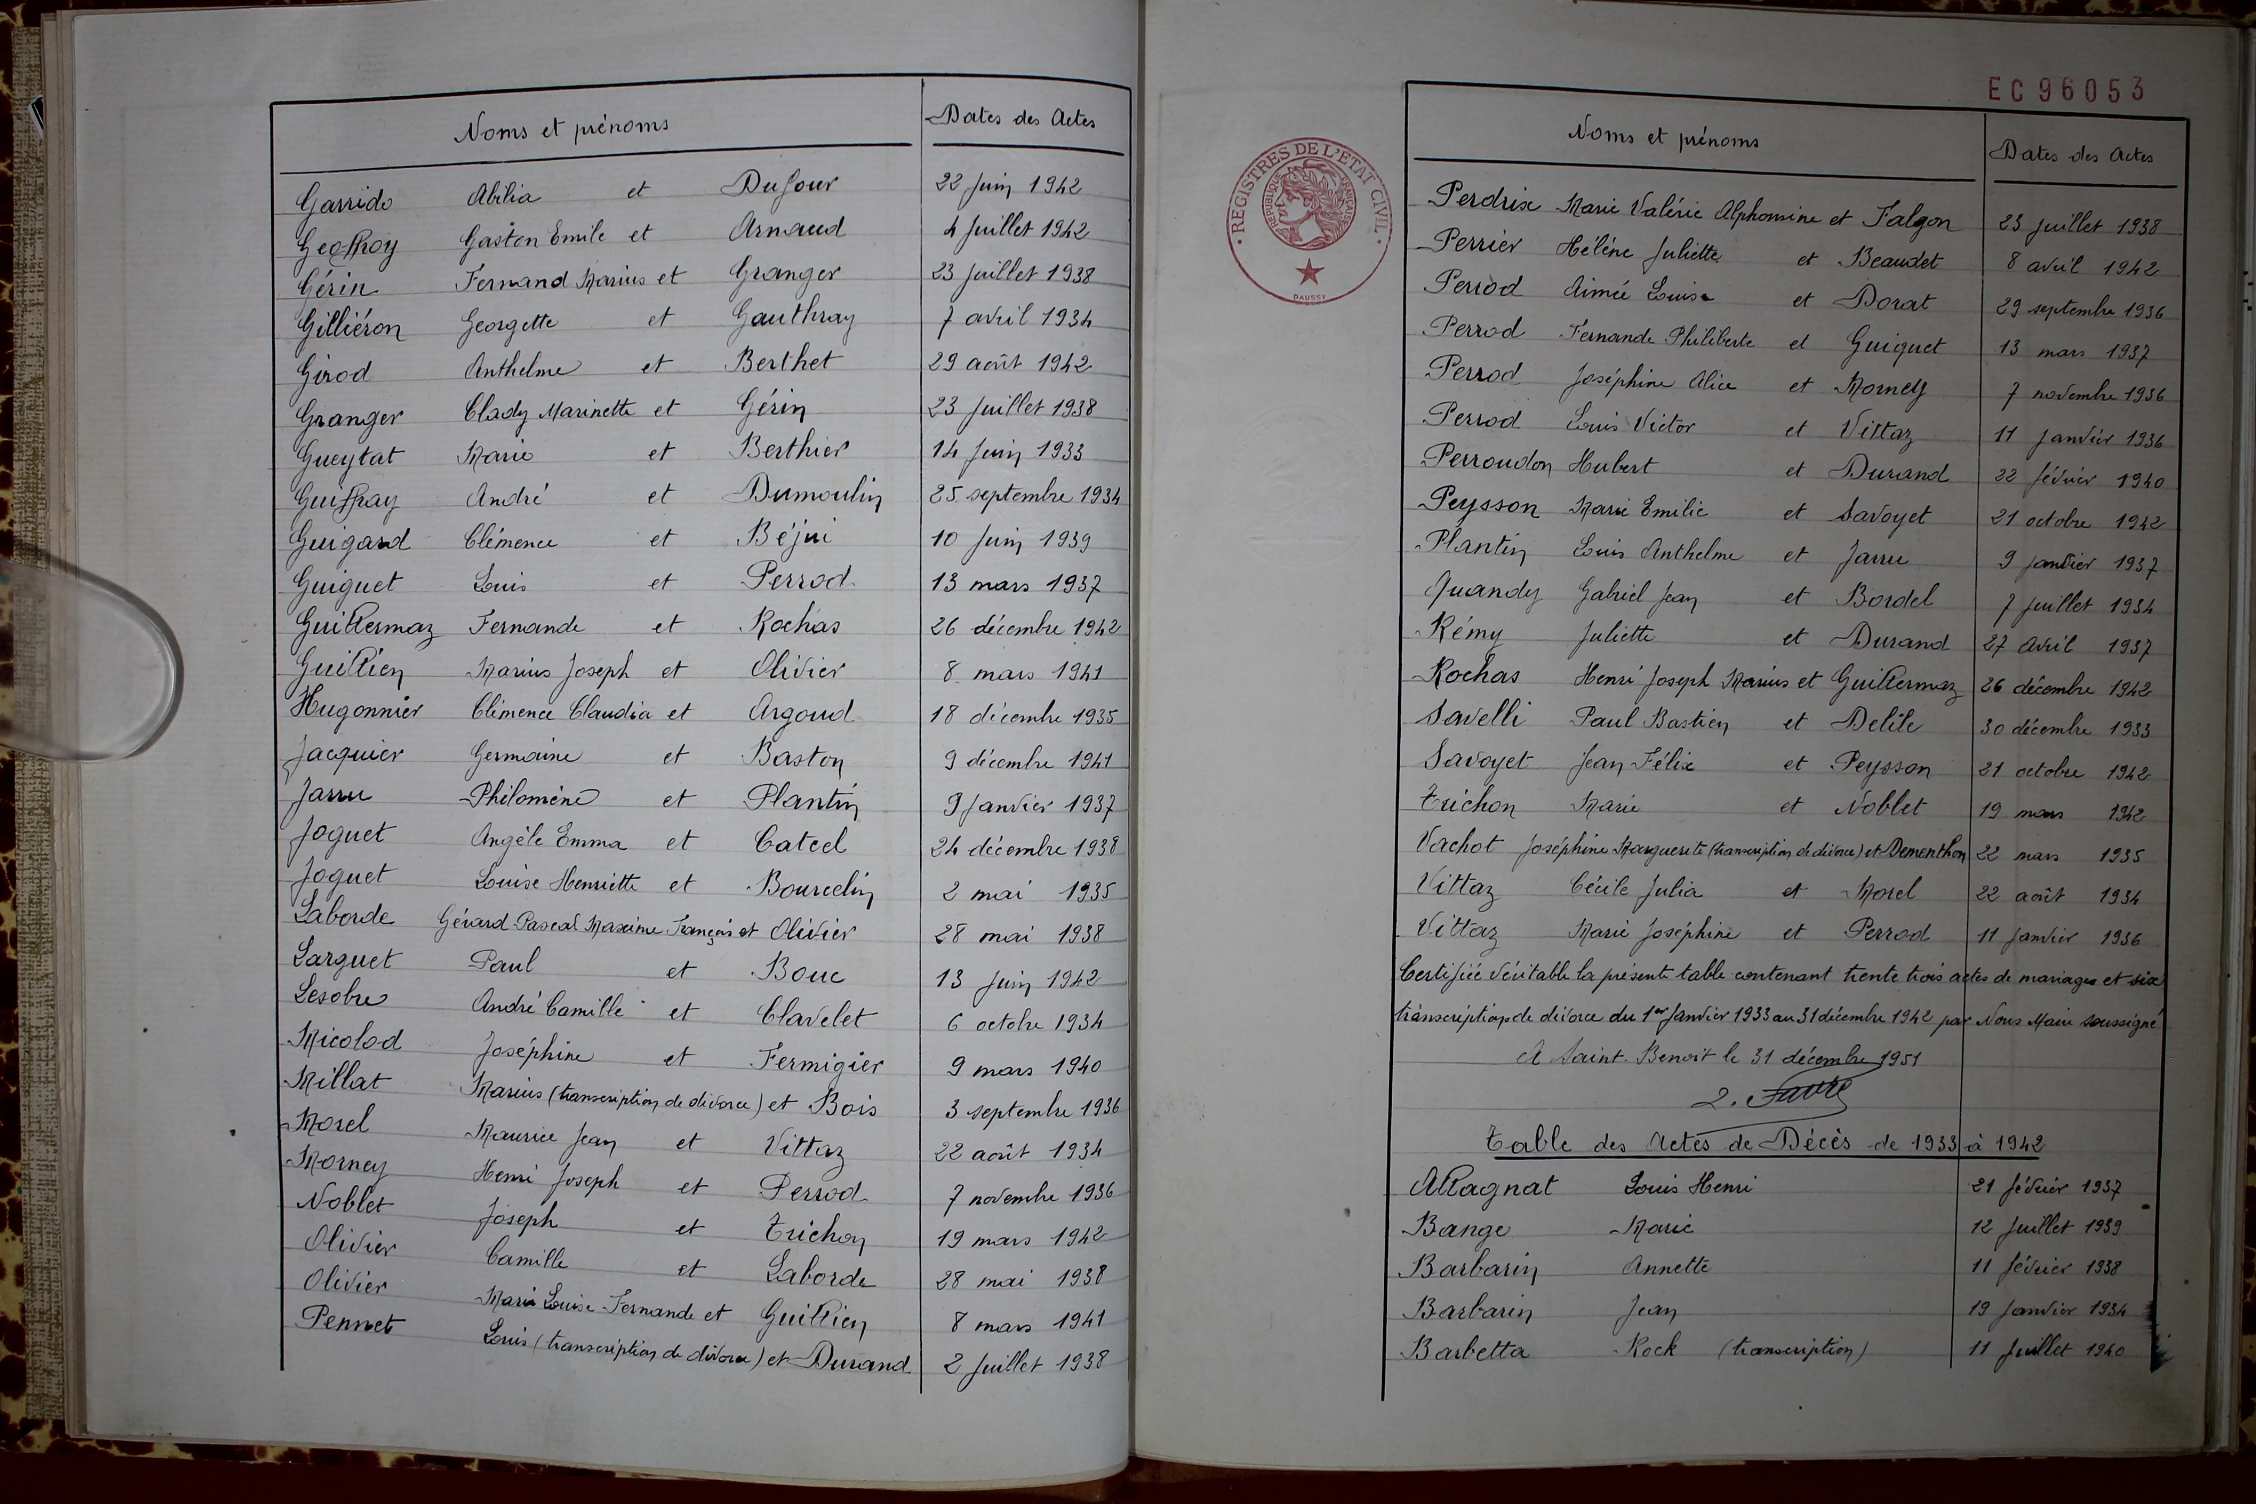 Noms et prénoms Dates des Actes
Garrido Abilia et Dufour 22 Juin 1942
Geoffroy Gaston Emile et Arnaud 4 Juillet 1942
Gérin Fernand Marius et Granger 23 Juillet 1938
Gilliéron Georgette et Gauthray 7 avril 1934
Girod Anthelme et Berthet 29 août 1942
Granger Clady Marinette et Gérin 23 Juillet 1938
Gueytat Marie et Berthier 14 Juin 1933
Guiffray André et Dumoulin 25 septembre 1934
Guigard Clémence et Béjui 10 Juin 1939
Guiguet Louis et Perrod 13 mars 1937
Guillermaz Fernande et Rochas 26 décembre 1942
Guillien Marius Joseph et Olivier 8 mars 1941
Hugonnier Clémence Claudia et Argoud 18 décembre 1935
Jacquier Germaine et Baston 9 décembre 1941
Jarru Philomène et Plantin 9 Janvier 1937
Joguet Angèle Emma et Catcel 24 décembre 1938
Joguet Louise Henriette et Bourcelin 2 mai 1935
Laborde Gérard Pascal Maxime François et Olivier 28 mai 1938
Larguet Paul et Bouc 13 Juin 1942
Lesobre André Camille et Clavelet 6 octobre 1934
Micolod Joséphine et Fermigier 9 mars 1940
Millat Marius (transcription de divorce) et Bois 3 septembre 1936
Morel Maurice Jean et Vittaz 22 août 1934
Morney Henri Joseph et Perrod 7 novembre 1936
Noblet Joseph et Trichon 19 mars 1942
Olivier Camille et Laborde 28 mai 1938
Olivier Marie Louise Fernande et Guillien 8 mars 1941
Pennet Louis (transcription de divorce) et Durand 2 Juillet 1938
EC96053
REGISTRES DE L'ETAT CIVIL
REPUBLIQUE FRANÇAISE
DAUSSY
Noms et prénoms Dates des Actes
Perdrix Marie Valérie Alphonsine et Falgon 23 Juillet 1938
Perrier Hélène Juliette et Beaudet 8 avril 1942
Perrod Aimée Louise et Dorat 29 septembre 1936
Perrod Fernande Philiberte et Guiguet 13 mars 1937
Perrod Joséphine Alice et Morney 7 novembre 1936
Perrod Louis Victor et Vittaz 11 Janvier 1936
Perroudon Hubert et Durand 22 février 1940
Peysson Marie Emilie et Savoyet 21 octobre 1942
Plantin Louis Anthelme et Jarru 9 Janvier 1937
Quandy Gabriel Jean et Bordel 7 Juillet 1934
Rémy Juliette et Durand 27 avril 1937
Rochas Henri Joseph Marius et Guillermaz 26 décembre 1942
Savelli Paul Bastien et Delile 30 décembre 1933
Savoyet Jean Félix et Peysson 21 octobre 1942
Trichon Marie et Noblet 19 mars 1942
Vachot Joséphine Marguerite (transcription de divorce) et Dementhon 22 mars 1935
Vittaz Cécile Julia et Morel 22 août 1934
Vittaz Marie Joséphine et Perrod 11 Janvier 1936
Certifiée véritable la présente table contenant trente trois actes de mariages et six
transcriptions de divorce du 1er Janvier 1933 au 31 décembre 1942 par Nous Maire soussigné
A Saint Benoit le 31 décembre 1951
L. Favre
Table des Actes de Décès de 1933 à 1942
Allagnat Louis Henri 21 février 1937
Bange Marie 12 Juillet 1939
Barbarin Annette 11 février 1938
Barbarin Jean 19 Janvier 1934
Barbetta Rock (transcription) 11 Juillet 1940